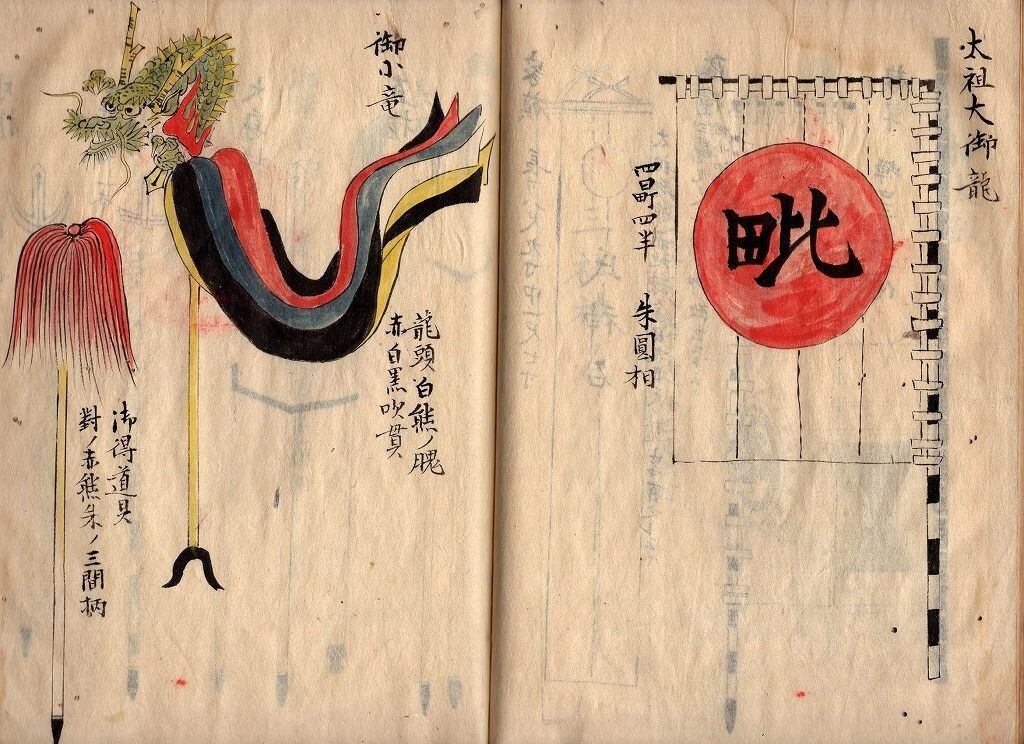 太祖大御龍
毗
四半
朱圓相
御小竜
龍頭白熊ノ
赤白黒吹貫
御得道具
對ノ赤熊朱ノ三間柄